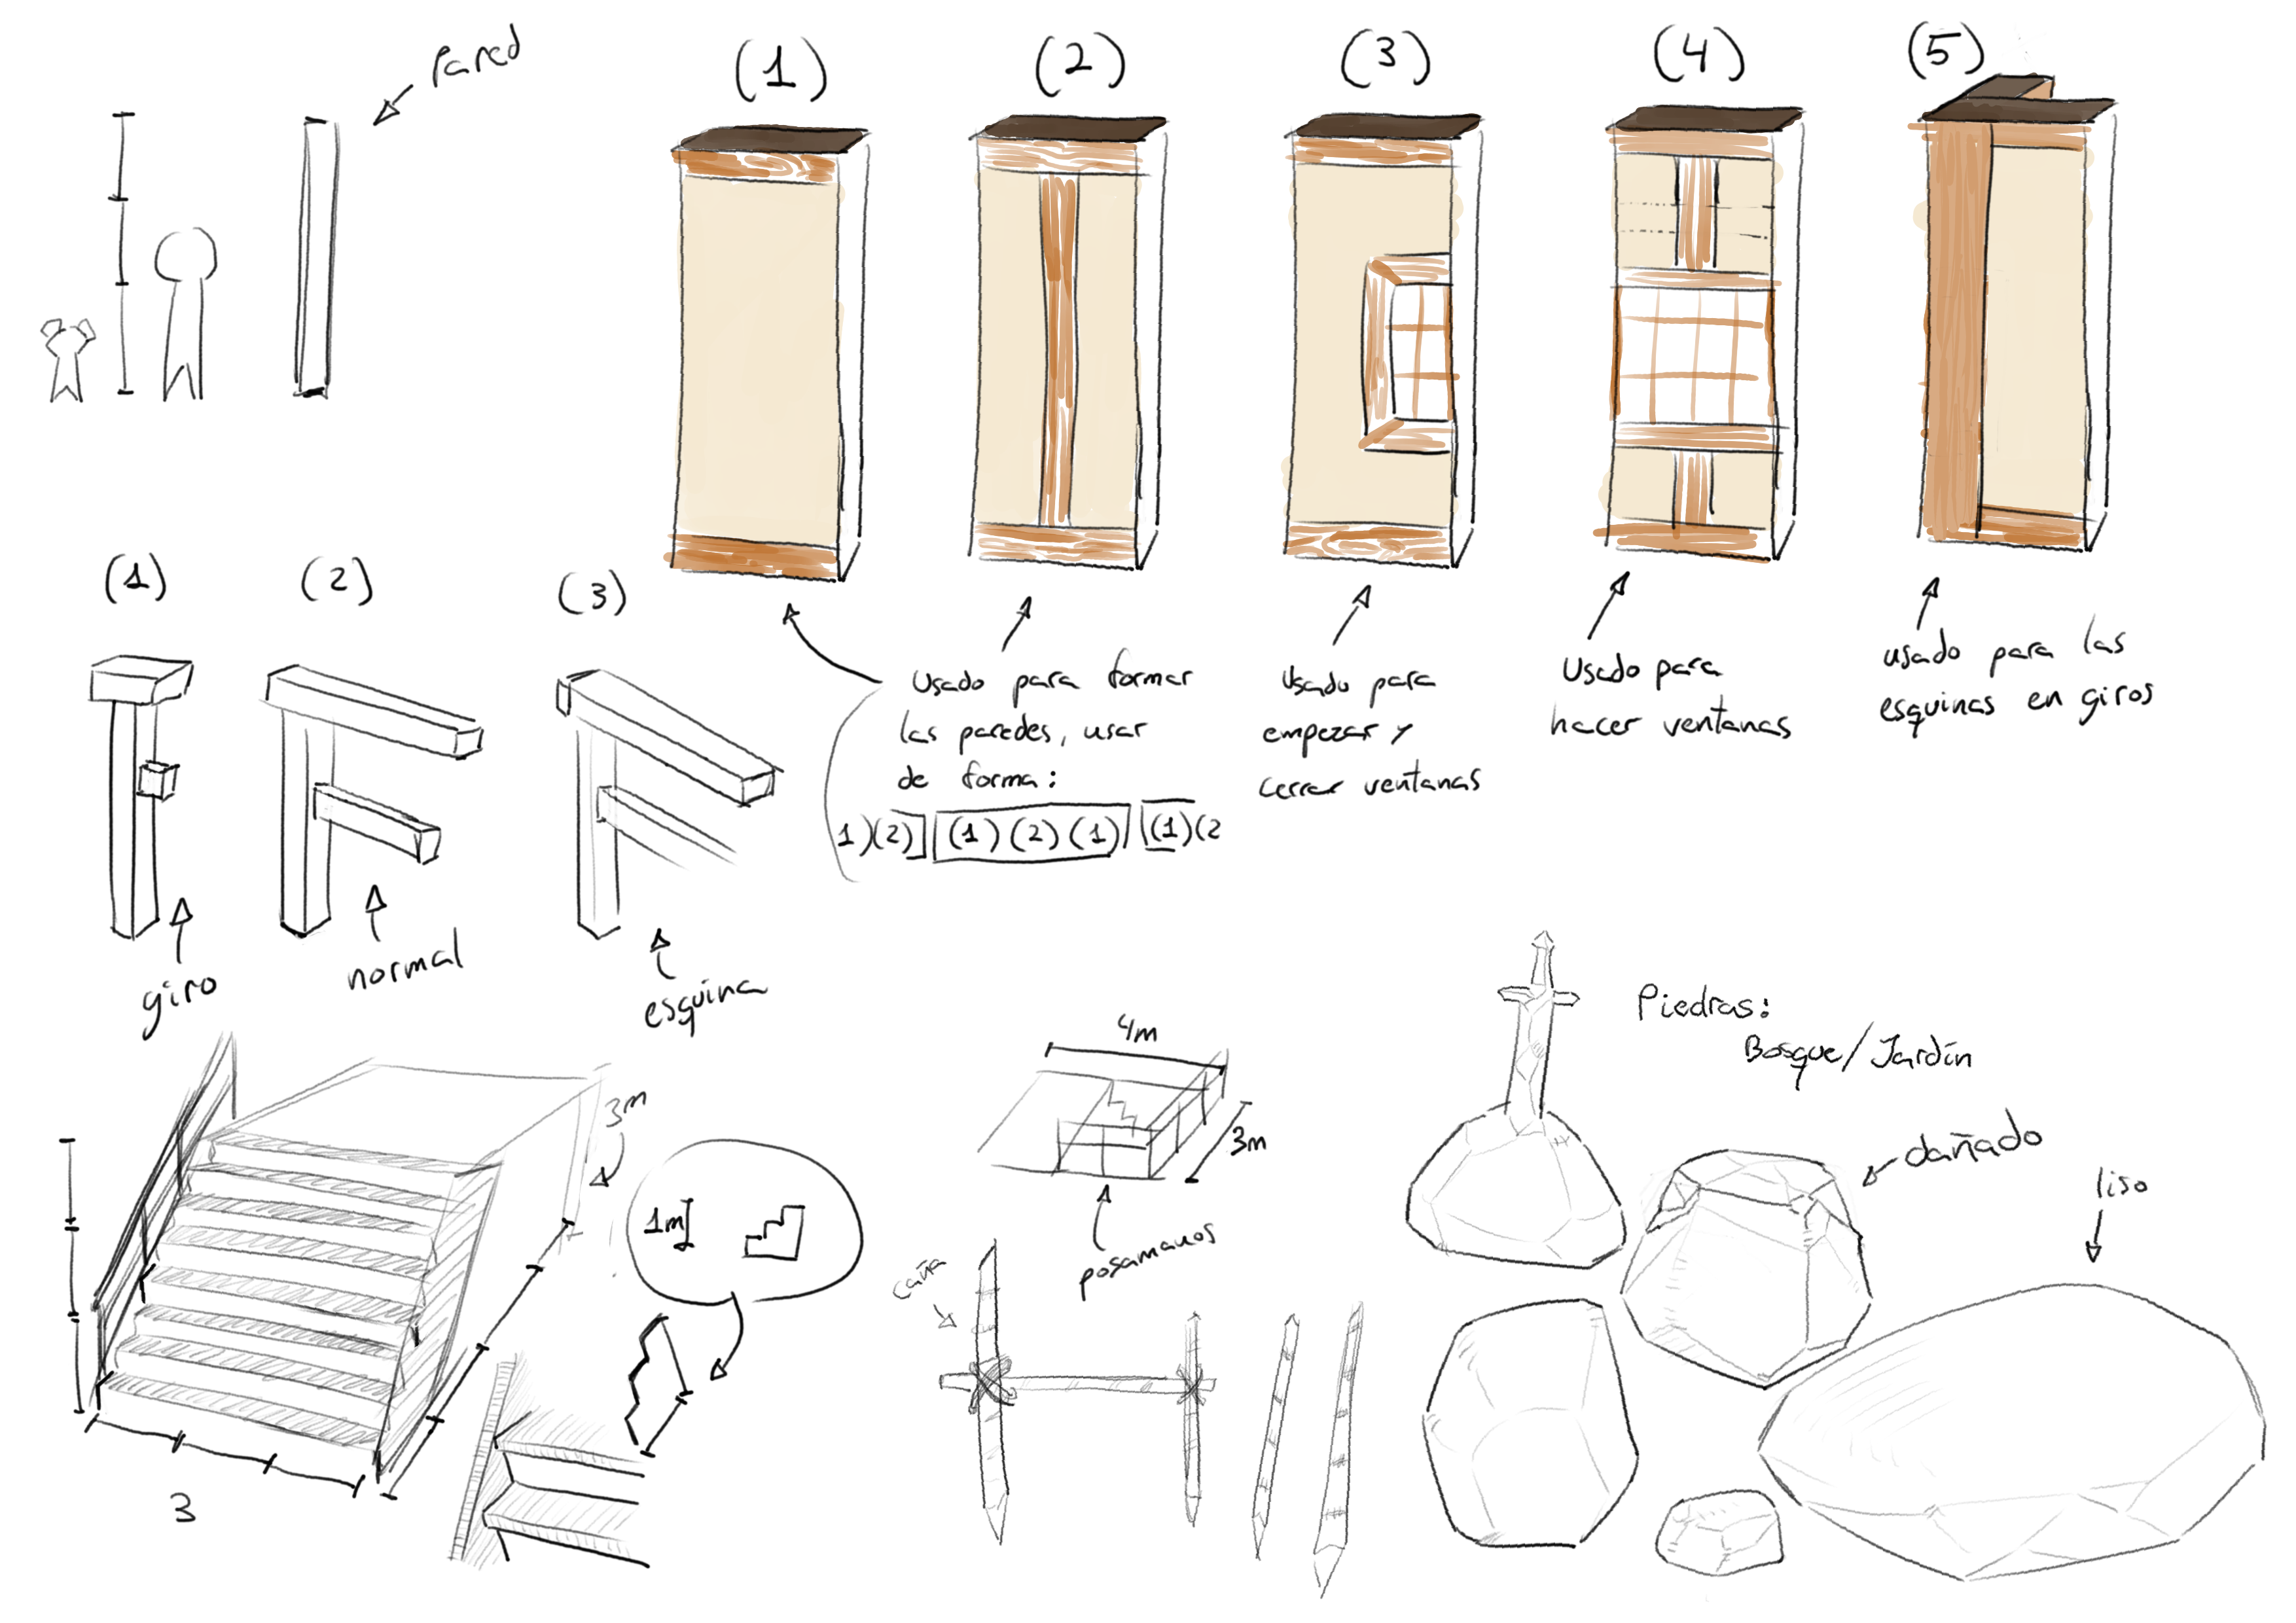 Pared
(1)
(2)
(3)
(4)
(5)
Usado para formar
las paredes, usar
de forma:
1)(2) (1)(2)(1) (1)(2
Usado para
empezar y
cerrar ventanas
Usado para
hacer ventanas
usado para las
esquinas en giros
(1)
(2)
(3)
giro
normal
esquina
3m
1m
3
4m
3m
posamanos
caña
Piedras:
Bosque/Jardín
dañado
liso